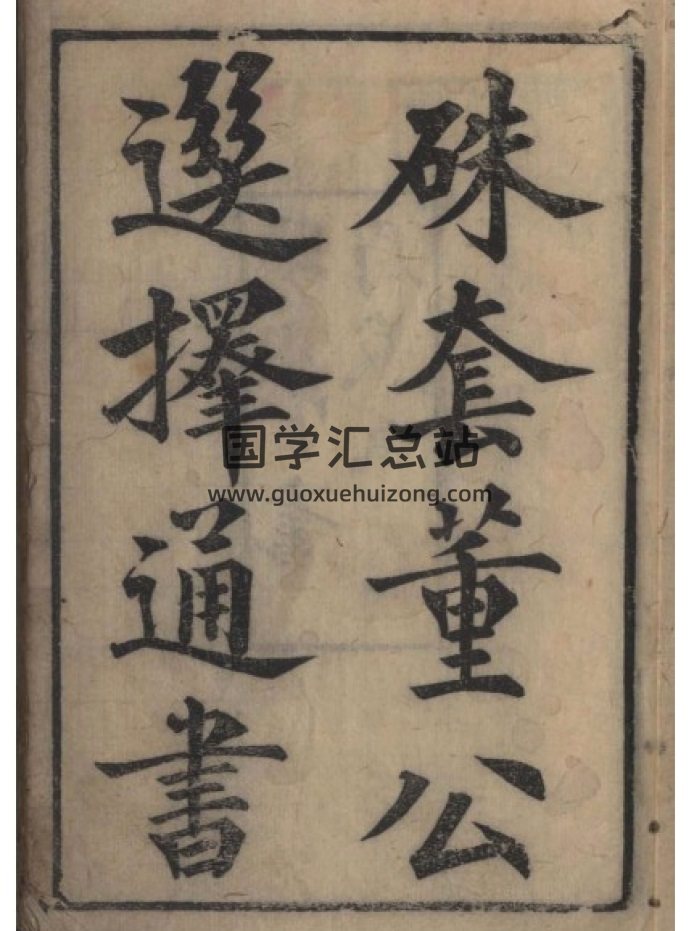 硃套董公
選擇通書
国学汇总站
www.guoxuehuizong.com